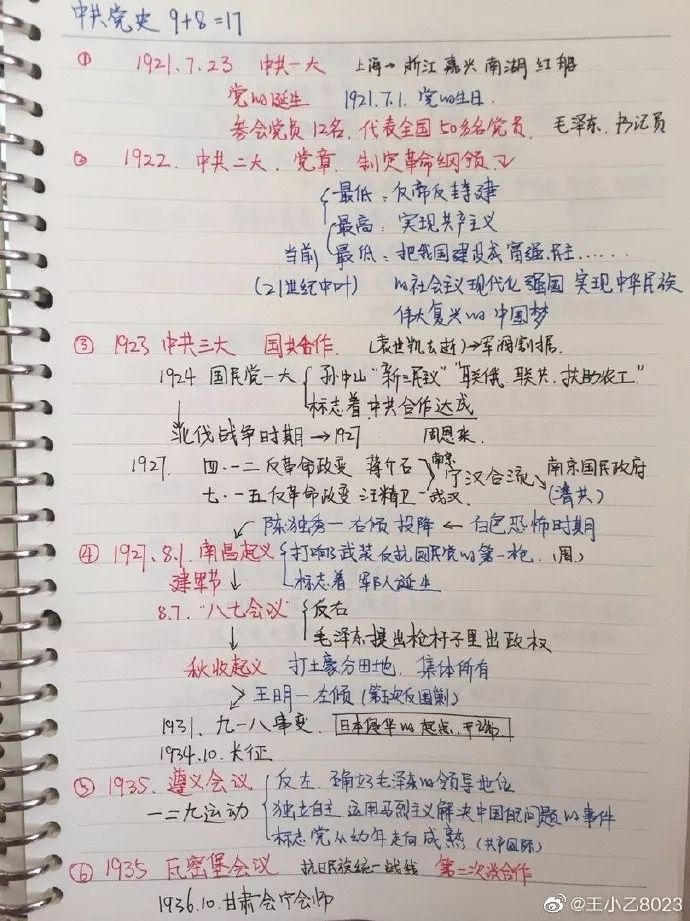 中共党史 9+8=17
① 1921.7.23 中共一大 上海→浙江嘉兴南湖红船
党的诞生 1921.7.1. 党的生日.
参会党员12名, 代表全国50多名党员. 毛泽东. 书记员
② 1922. 中共二大. 党章. 制定革命纲领
最低: 反帝反封建
最高: 实现共产主义
当前 最低: 把我国建设成富强.民主......
(21世纪中叶) 的社会主义现代化强国 实现中华民族
伟大复兴的中国梦
③ 1923 中共三大 国共合作. (袁世凯去逝)→军阀割据.
1924 国民党一大 孙中山"新三民议" "联俄. 联共. 扶助农工"
标志着中共合作达成
北伐战争时期→1927 周恩来.
1927 四·一二反革命政变 蒋介石 南京 宁汉合流 南京国民政府
七·一五反革命政变 汪精卫—武汉 (清共)
陈独秀—右倾 投降 ← 白色恐怖时期
④ 1927.8.1. 南昌起义 打响了武装反抗国民党的第一枪. (周)
建军节 标志着 军队诞生
8.7. "八七会议" 反右
毛泽东提出枪杆子里出政权
秋收起义 打土豪分田地. 集体所有
王明—左倾 (第五次反围剿)
1931. 九一八事变. 日本侵华的起点.开端
1934.10.长征
⑤ 1935. 遵义会议 反左. 确立毛泽东的领导地位
一二九运动 独立自主 运用马列主义解决中国问题的事件
标志党从幼年走向成熟 (共产国际)
⑥ 1935 瓦窑堡会议 抗日民族统一战线 第二次谈合作
1936.10.甘肃会宁会师
@王小乙8023